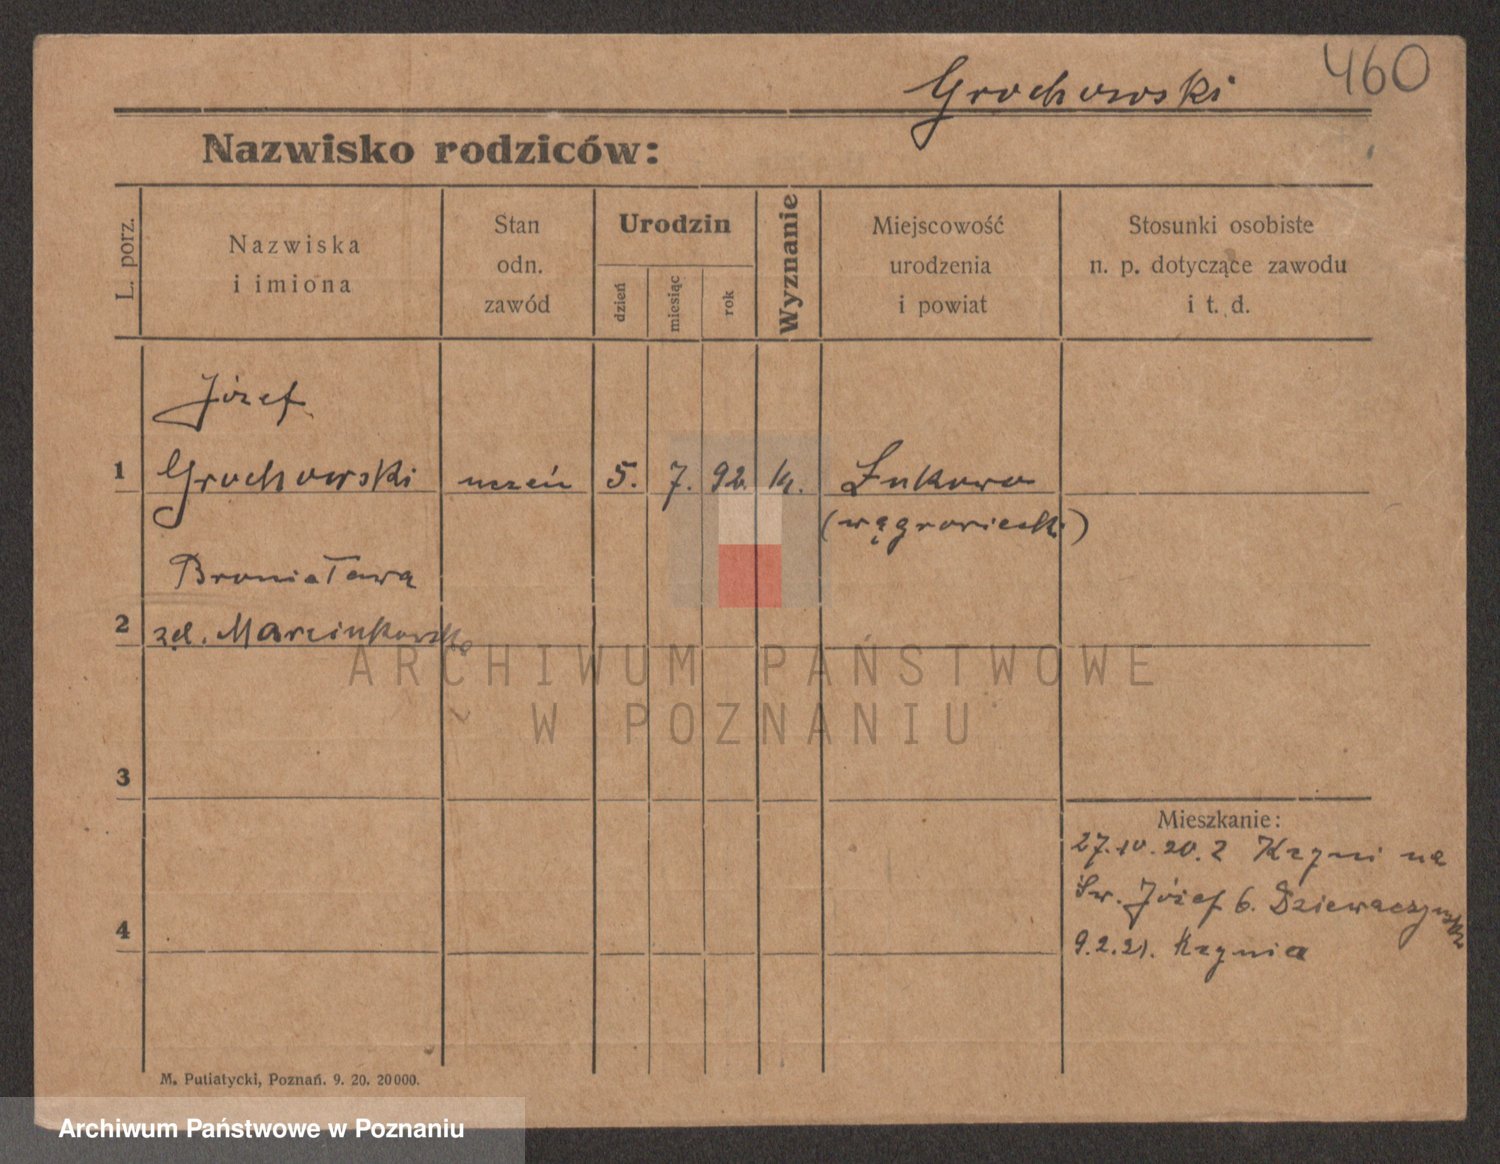 Grochowski
460
Nazwisko rodziców:
L. porz.
Nazwiska
i imiona
Stan
odn.
zawód
Urodzin
dzień
miesiąc
rok
Wyznanie
Miejscowość
urodzenia
i powiat
Stosunki osobiste
n. p. dotyczące zawodu
i t. d.
Józef
1 Grochowski uczeń 5. 7. 92. k. Łukowo
(wągrowiecki)
Bronisława
2 zd. Marcinkowska
ARCHIWUM PAŃSTWOWE
W POZNANIU
3
Mieszkanie:
27.10.20. z Kcyni na
Św. Józef 6.
4
9.2.21. Kcynia
M. Putiatycki, Poznań. 9. 20. 20000.
Archiwum Państwowe w Poznaniu